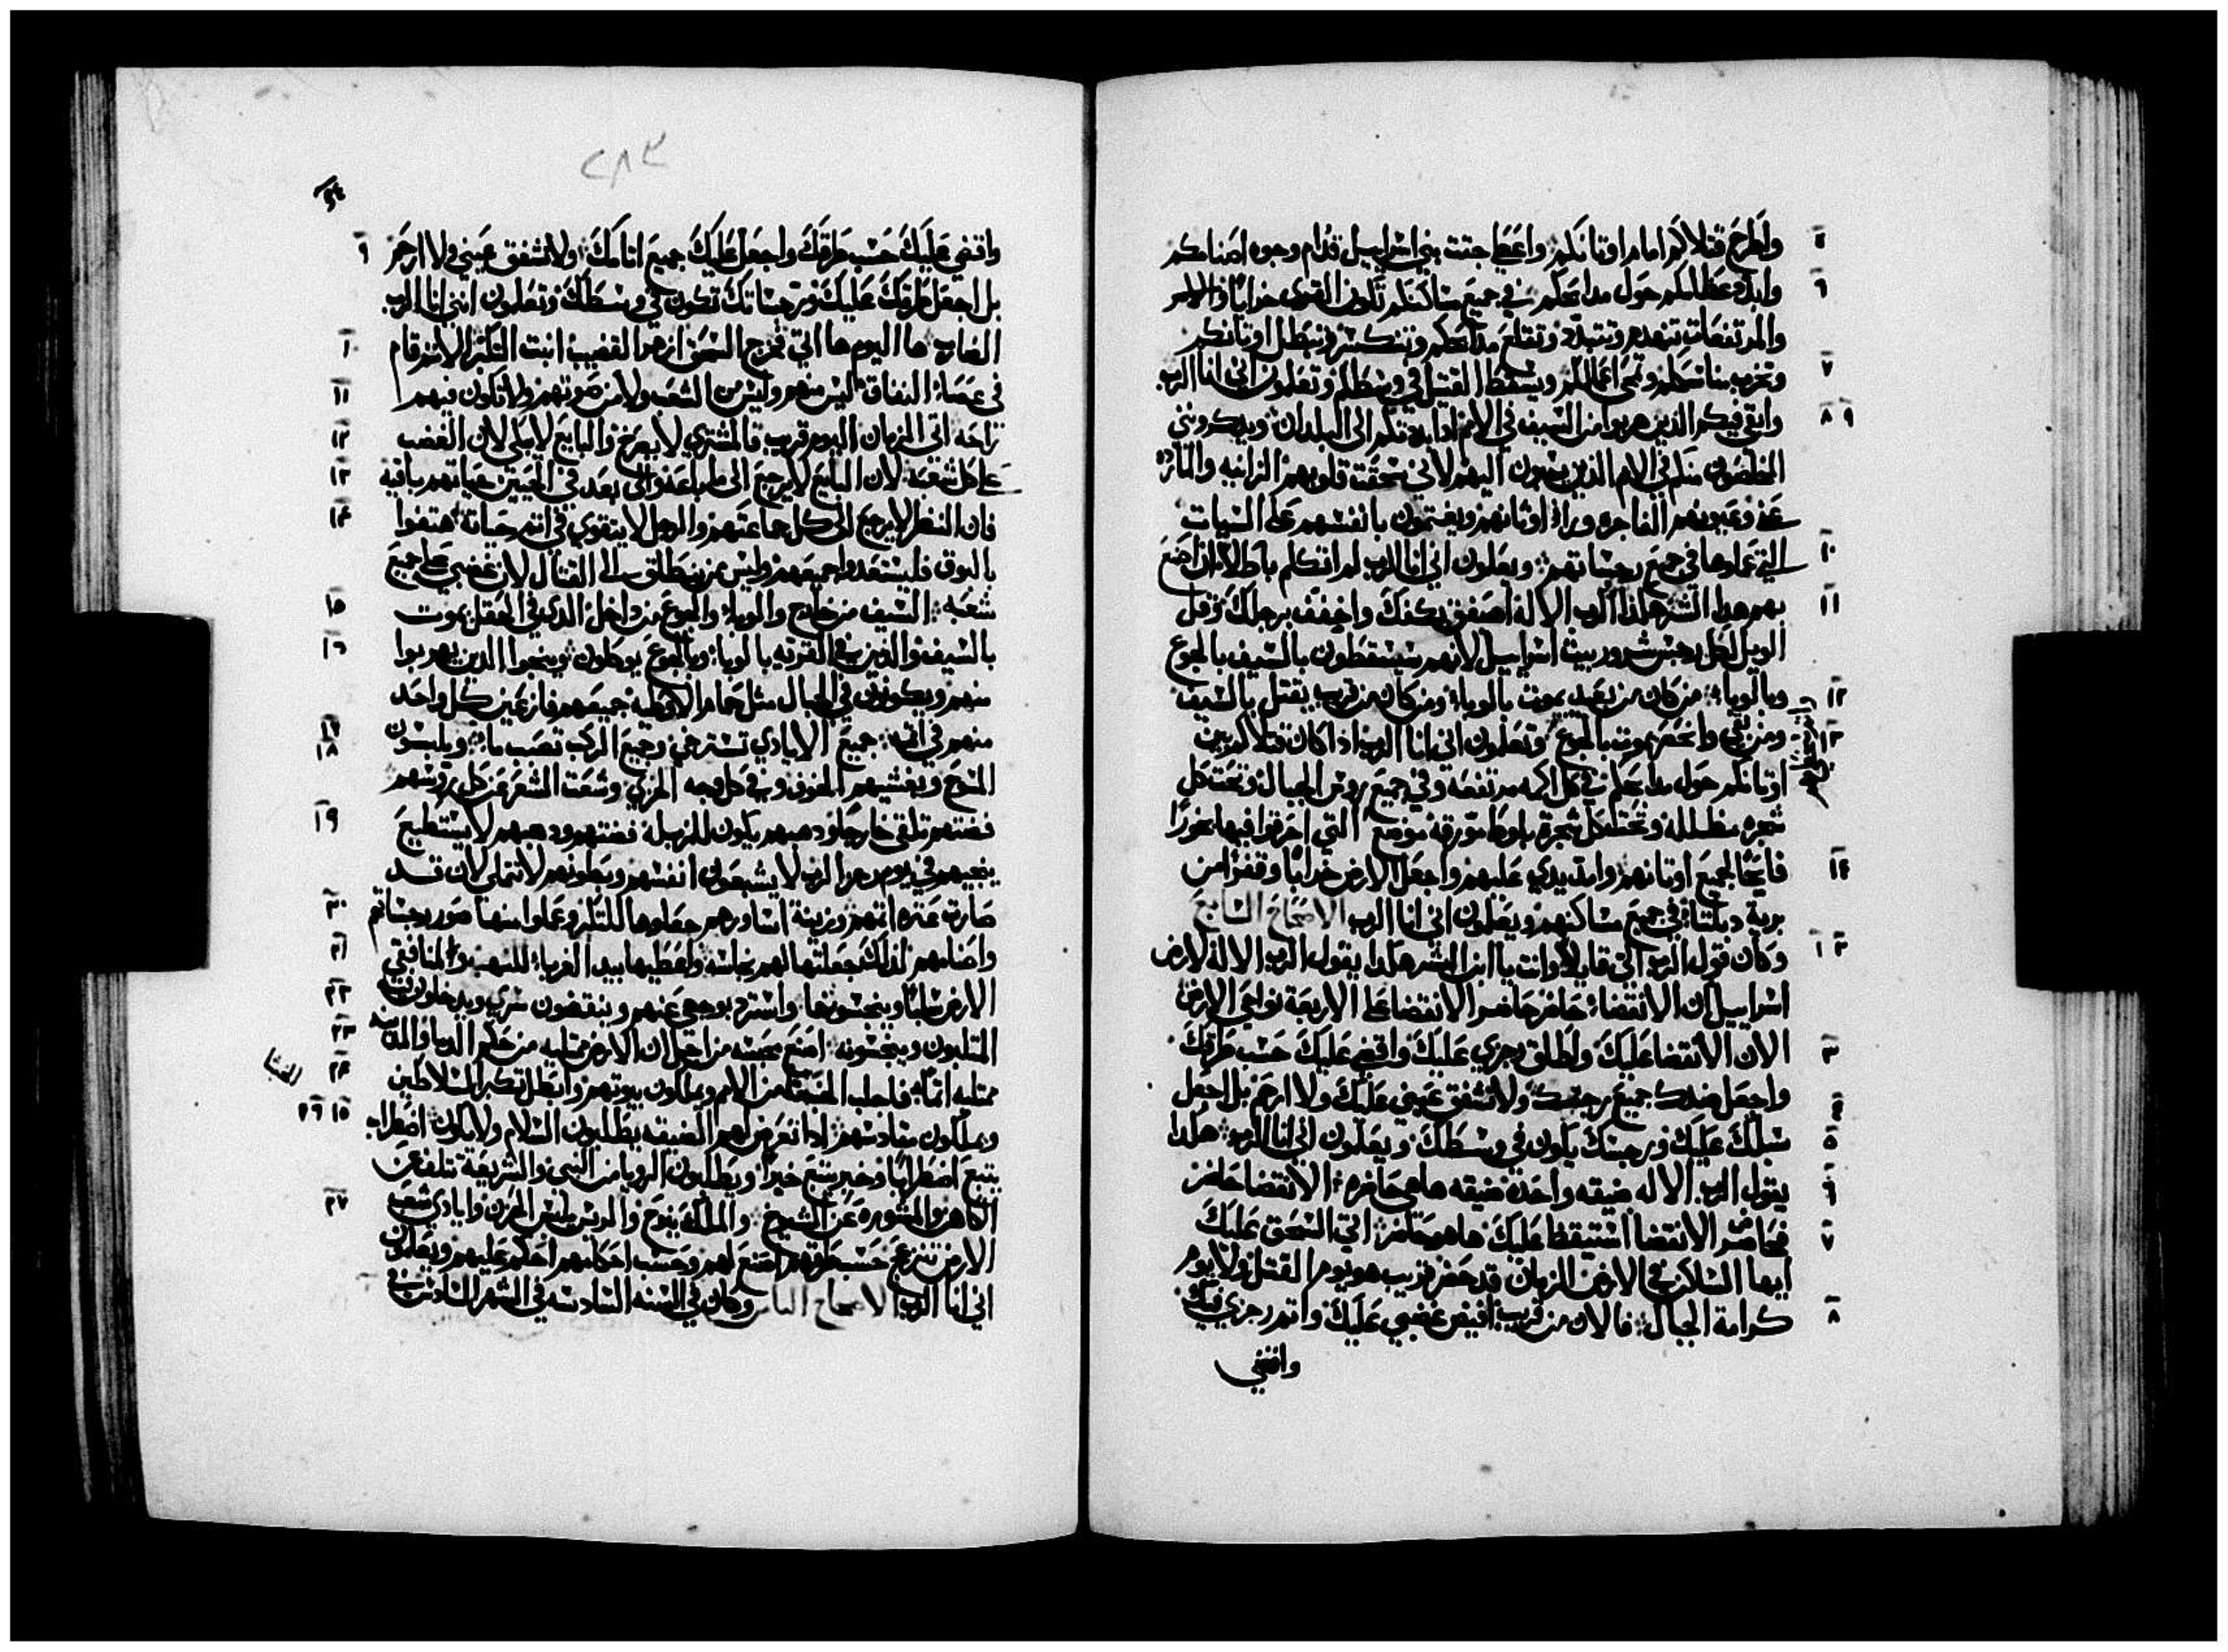 واطرح قتلاكم امام اوتانكم واعطي جتت بني اسراييل قدام وجوه اصنامكم
وابدد عظامكم حول مدابحكم في جميع مساكنكم تكون القرى خرابًا
والمرتفعات تنهدم وتتبدد وتقلع مدابحكم وتتكسر وتبطل اوتانكم
وتخرب مناسككم وتمحى اعمالكم ويسقط القتيل في وسطكم وتعلمون اني انا الرب
وابقي فيكم الذين هربوا من السيف في الامم اذا بددتكم الى البلدان ويدكرونني
المخلصون منكم في الامم الذين يسبون اليهم لاني سحقت قلوبهم الزانيه والمارده
عني وعيونهم الفاجره وراء اوثانهم ويغتمون بانفسهم على السيات
التي عملوها في جميع رجساتهم ويعلمون اني انا الرب لم اتكلم باطلا ان اصنع
بهم هدا الشر هكدا قال الرب الاله اصفق بكفك واخفف برجلك وقل
الويل لكل رجس شرور بيت اسراييل لانهم سيسقطون بالسيف بالجوع
وبالوباء من كان من بعيد يموت بالوباء ومن كان من قريب يقتل بالسيف
ومن بقي وانحصر يموت بالجوع وتعلمون اني انا الرب ادا كان قتلاكم بين
اوتانكم حول مدابحكم في كل اكمه مرتفعه وفي جميع روس الجبال وتحت كل
شجره مظلله وتحت كل شجرة بلوط مورقة موضع التي احرقوا فيها بخورًا
فايحًا لجميع اوتانهم وامد يدي عليهم واجعل الارض خرابًا وقفرًا من
برية دبلتا في جميع مساكنهم ويعلمون اني انا الرب الاصحاح السابع
وكان قول الرب الي قايلاً وانت يا ابن البشر هكدا يقول الرب الاله لارض
اسراييل ان الانقضاء حاضر حاضر الانقضا على الاربعة نواحي الارض
الان الانقضا عليك واطلق رجزي عليك واقضي عليك حسب طرقك
واجعل ضدك جميع رجسك ولا تشفق عيني عليك ولا ارحم بل اجعل
سبلك عليك ورجسك يكون في وسطك ويعلمون اني انا الرب هكدا
يقول الرب الاله ضيقه واحدة ضيقه ها هي حاضره الانقضا حاضر
حاضر الانقضا استيقظ عليك ها هو حاضر اتي السحق عليك
ايها الساكن في الارض الزمان قد حضر قريب هو يوم القتل ولا يوم
كرامة الجبال فالان من قريب افيض غضبي عليك واتم رجزي فيك
واقضي
٢٨٣
واقضي عليك حسب طرقك واجعل عليك جميع اتامك ولا تشفق عيني ولا ارحم
بل اجعل طرقك عليك ورجساتك تكون في وسطك وتعلمون انني انا الرب
الضارب ها اليوم ها اتي خرج السحق ازهر القضيب انبت التكبر الاثم قام
في عصاة النفاق ليس منهم وليس من الشعب ولا من صوتهم ولا تكون فيهم
راحه اتى الزمان اليوم قريب فالمشتري لا يفرح والبايع لا يبكي لان الغضب
على كل شعبه لان البايع لا يرجع الى ما باعه والى بعد في الحيين حياتهم باقيه
فان النظر لا يرجع الى كل جماعتهم والرجل لا يتقوي في اتم حياته هتفوا
بالبوق فليستعدوا جميعهم وليس من ينطلق الى القتال لان غضبي على جميع
شعبه السيف من خارج والوباء والجوع من داخل الدي في الحقل يموت
بالسيف والذين في القريه بالوباء وبالجوع يوكلون وينجوا الدين يهربوا
منهم ويكونون في الجبال مثل حمام الاوطيه جميعهم فازعين كل واحد
منهم في اتمه جميع الايادي تسترخي وجميع الركب تصب ماء ويلبسون
المسوح ويغشيهم الخوف وفي كل وجه الخزي وشعث الشعر عن كل روسهم
فضتهم تلقى خارجًا ودهبهم يكون للمزبلة فضتهم ودهبهم لا يستطيع
ينجيهم في يوم رجز الرب لا يشبعون انفسهم وبطونهم لا تمتلي لان قد
صارت عثره اتمهم وزينة اساورهم جعلوها للتكبر وعملوا منها صور رجساتهم
واصنامهم لدلك جعلتها لهم نجاسه واعطيها بيد الغرباء للنهب ولمنافقي
الارض سلبًا وينجسونها واسترد بوجهي عنهم وينقضون سري ويدخلون فيه
المتلبون وينجسونه اصنع حبسه من اجل ان الارض ممتليه من حكم الدما والمدينه
ممتليه اتمًا فاجلب الخبثا من الامم ويملكون بيوتهم وابطل تكبر المسلاطين
ويملكون مقادسهم ادا تعرض لهم الضيقه يطلبون السلام ولا يكون اضطراب
يتبع اضطرابًا وخبر يتبع خبرًا ويطلبون الرويا من النبي والشريعة تتلف عن
الكاهن والمشوره عن الشيوخ والملك ينوح والريس يلبس الحزن وايادي شعب
الارض تنزعج حسب طرقهم اصنع لهم وحسب احكامهم احكم عليهم ويعلمون
اني انا الرب الاصحاح الثامن وكان في السنه السادسه في الشهر السادس في